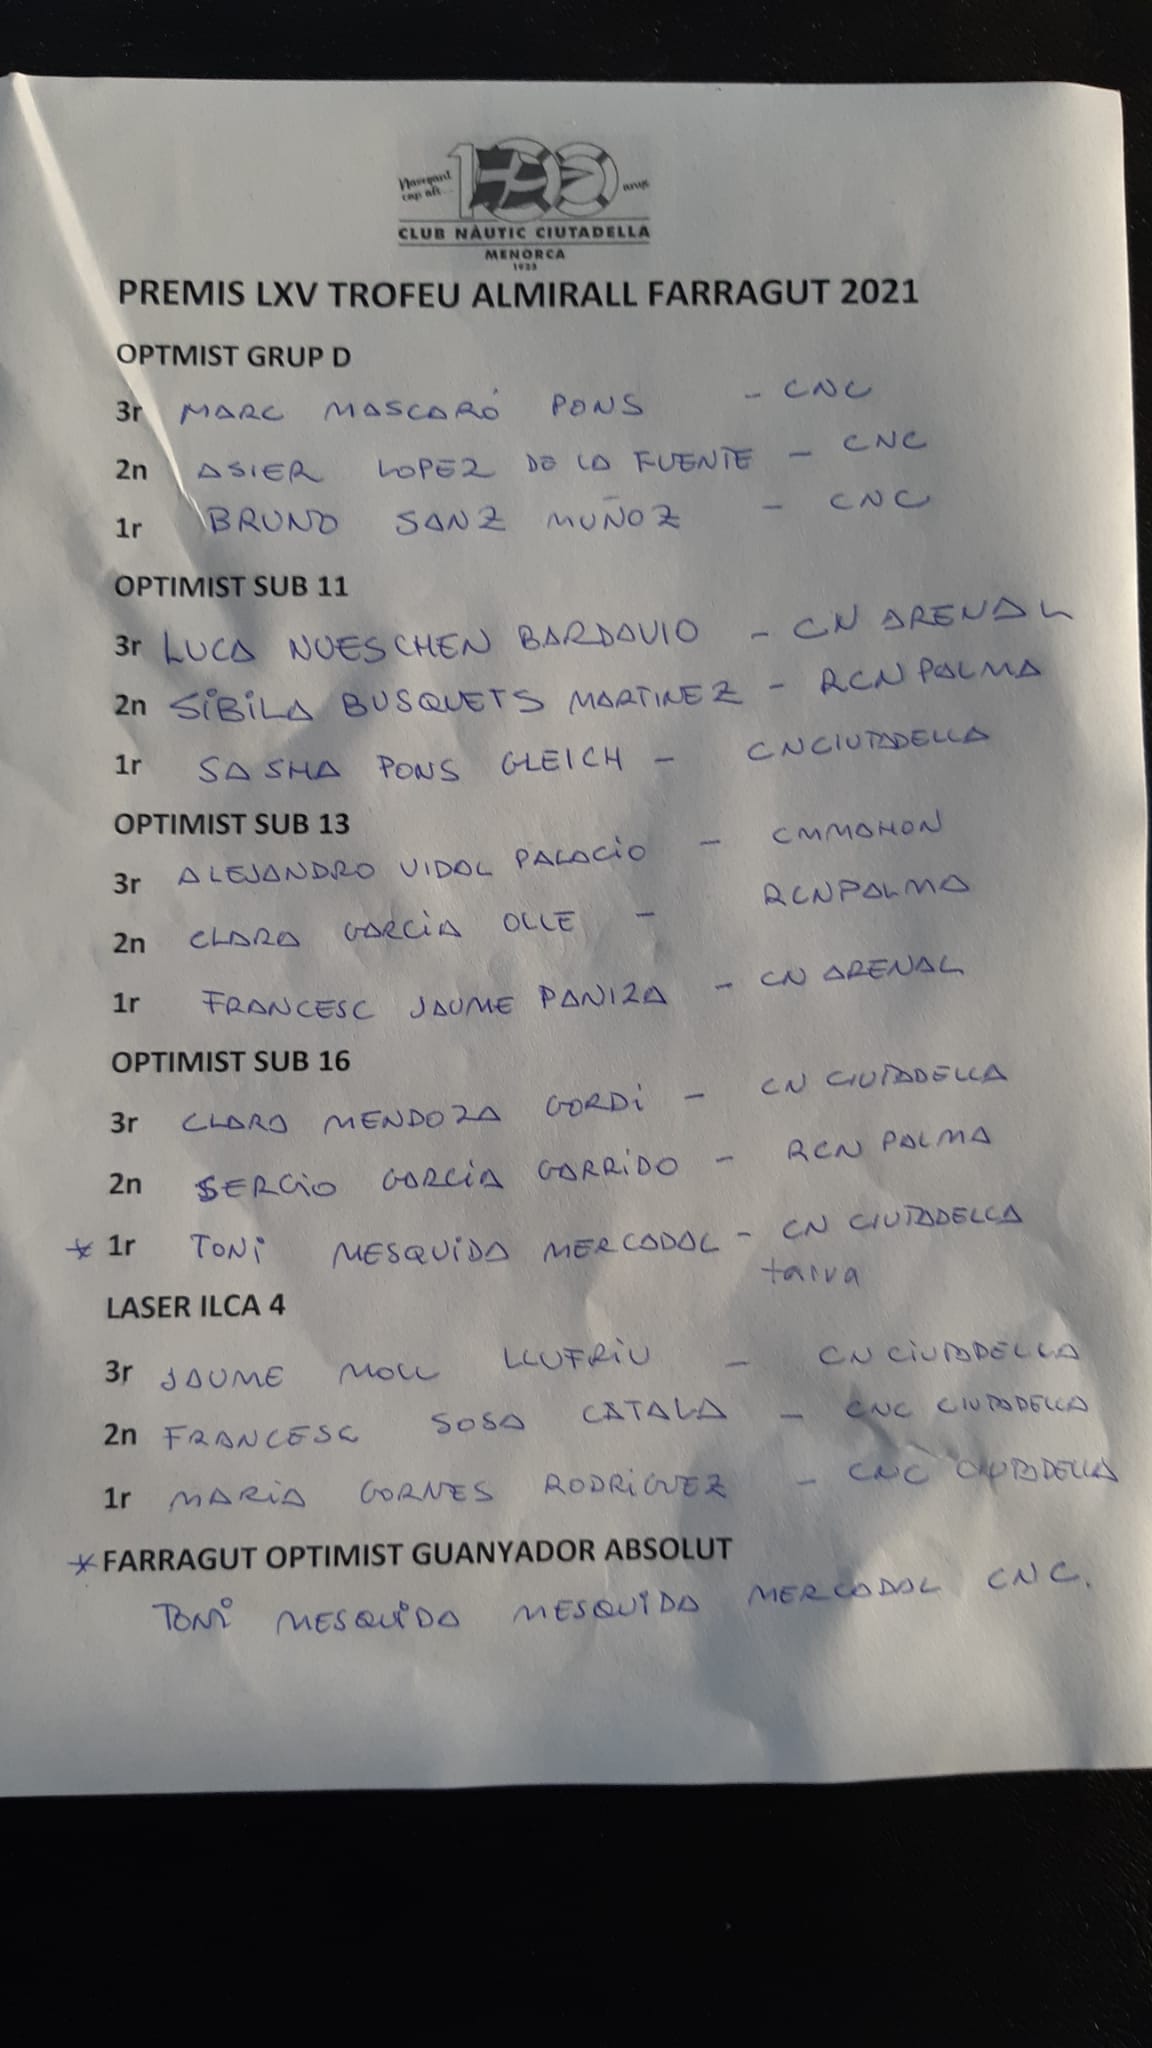 Navegant
cap als...
100
anys
CLUB NÀUTIC CIUTADELLA
MENORCA
1923
PREMIS LXV TROFEU ALMIRALL FARRAGUT 2021
OPTMIST GRUP D
3r MARC MASCARÓ PONS - CNC
2n ASIER LOPEZ DE LA FUENTE - CNC
1r BRUNO SANZ MUÑOZ - CNC
OPTIMIST SUB 11
3r LUCA NUESCHEN BARDAVIO - CN ARENAL
2n SIBILA BUSQUETS MARTINEZ - RCN PALMA
1r SASHA PONS GLEICH - CN CIUTADELLA
OPTIMIST SUB 13
3r ALEJANDRO VIDAL PALACIO - CMMAHON
2n CLARA GARCIA OLLE - RCNPALMA
1r FRANCESC JAUME PANIZA - CN ARENAL
OPTIMIST SUB 16
3r CLARA MENDOZA GORDI - CN CIUTADELLA
2n SERGIO GARCIA GARRIDO - RCN PALMA
* 1r TONI MESQUIDA MERCADAL - CN CIUTADELLA
LASER ILCA 4
3r JAUME MOLL LLUFRIU - CN CIUTADELLA
2n FRANCESC SOSA CATALA - CNC CIUTADELLA
1r MARIA GORNES RODRIGUEZ - CNC CIUTADELLA
* FARRAGUT OPTIMIST GUANYADOR ABSOLUT
TONI MESQUIDA MESQUIDA MERCADAL CNC.